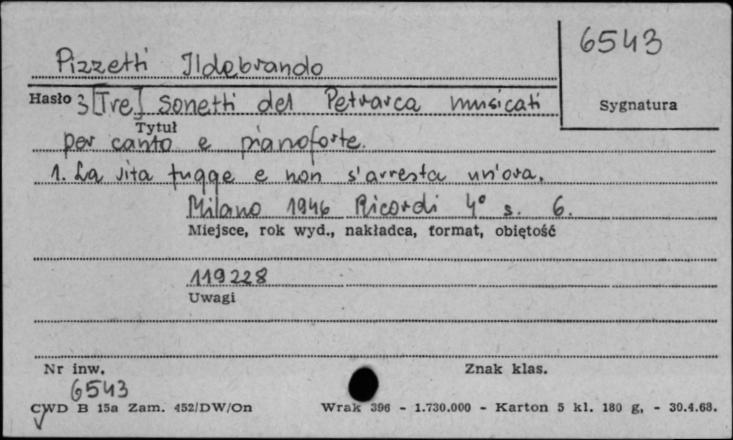 6543
Pizzetti Ildebrando
Hasło 3 [Tre] Sonetti del Petrarca musicati
Sygnatura
Tytuł
per canto e pianoforte.
1. La vita fugge e non s'arresta un'ora.
Milano 1946 Ricordi 4° s. 6.
Miejsce, rok wyd., nakładca, format, objętość
119228
Uwagi
Nr inw.
Znak klas.
6543
CWD B 15a Zam. 452/DW/On
Wrak 396 - 1.730.000 - Karton 5 kl. 180 g, - 30.4.68.